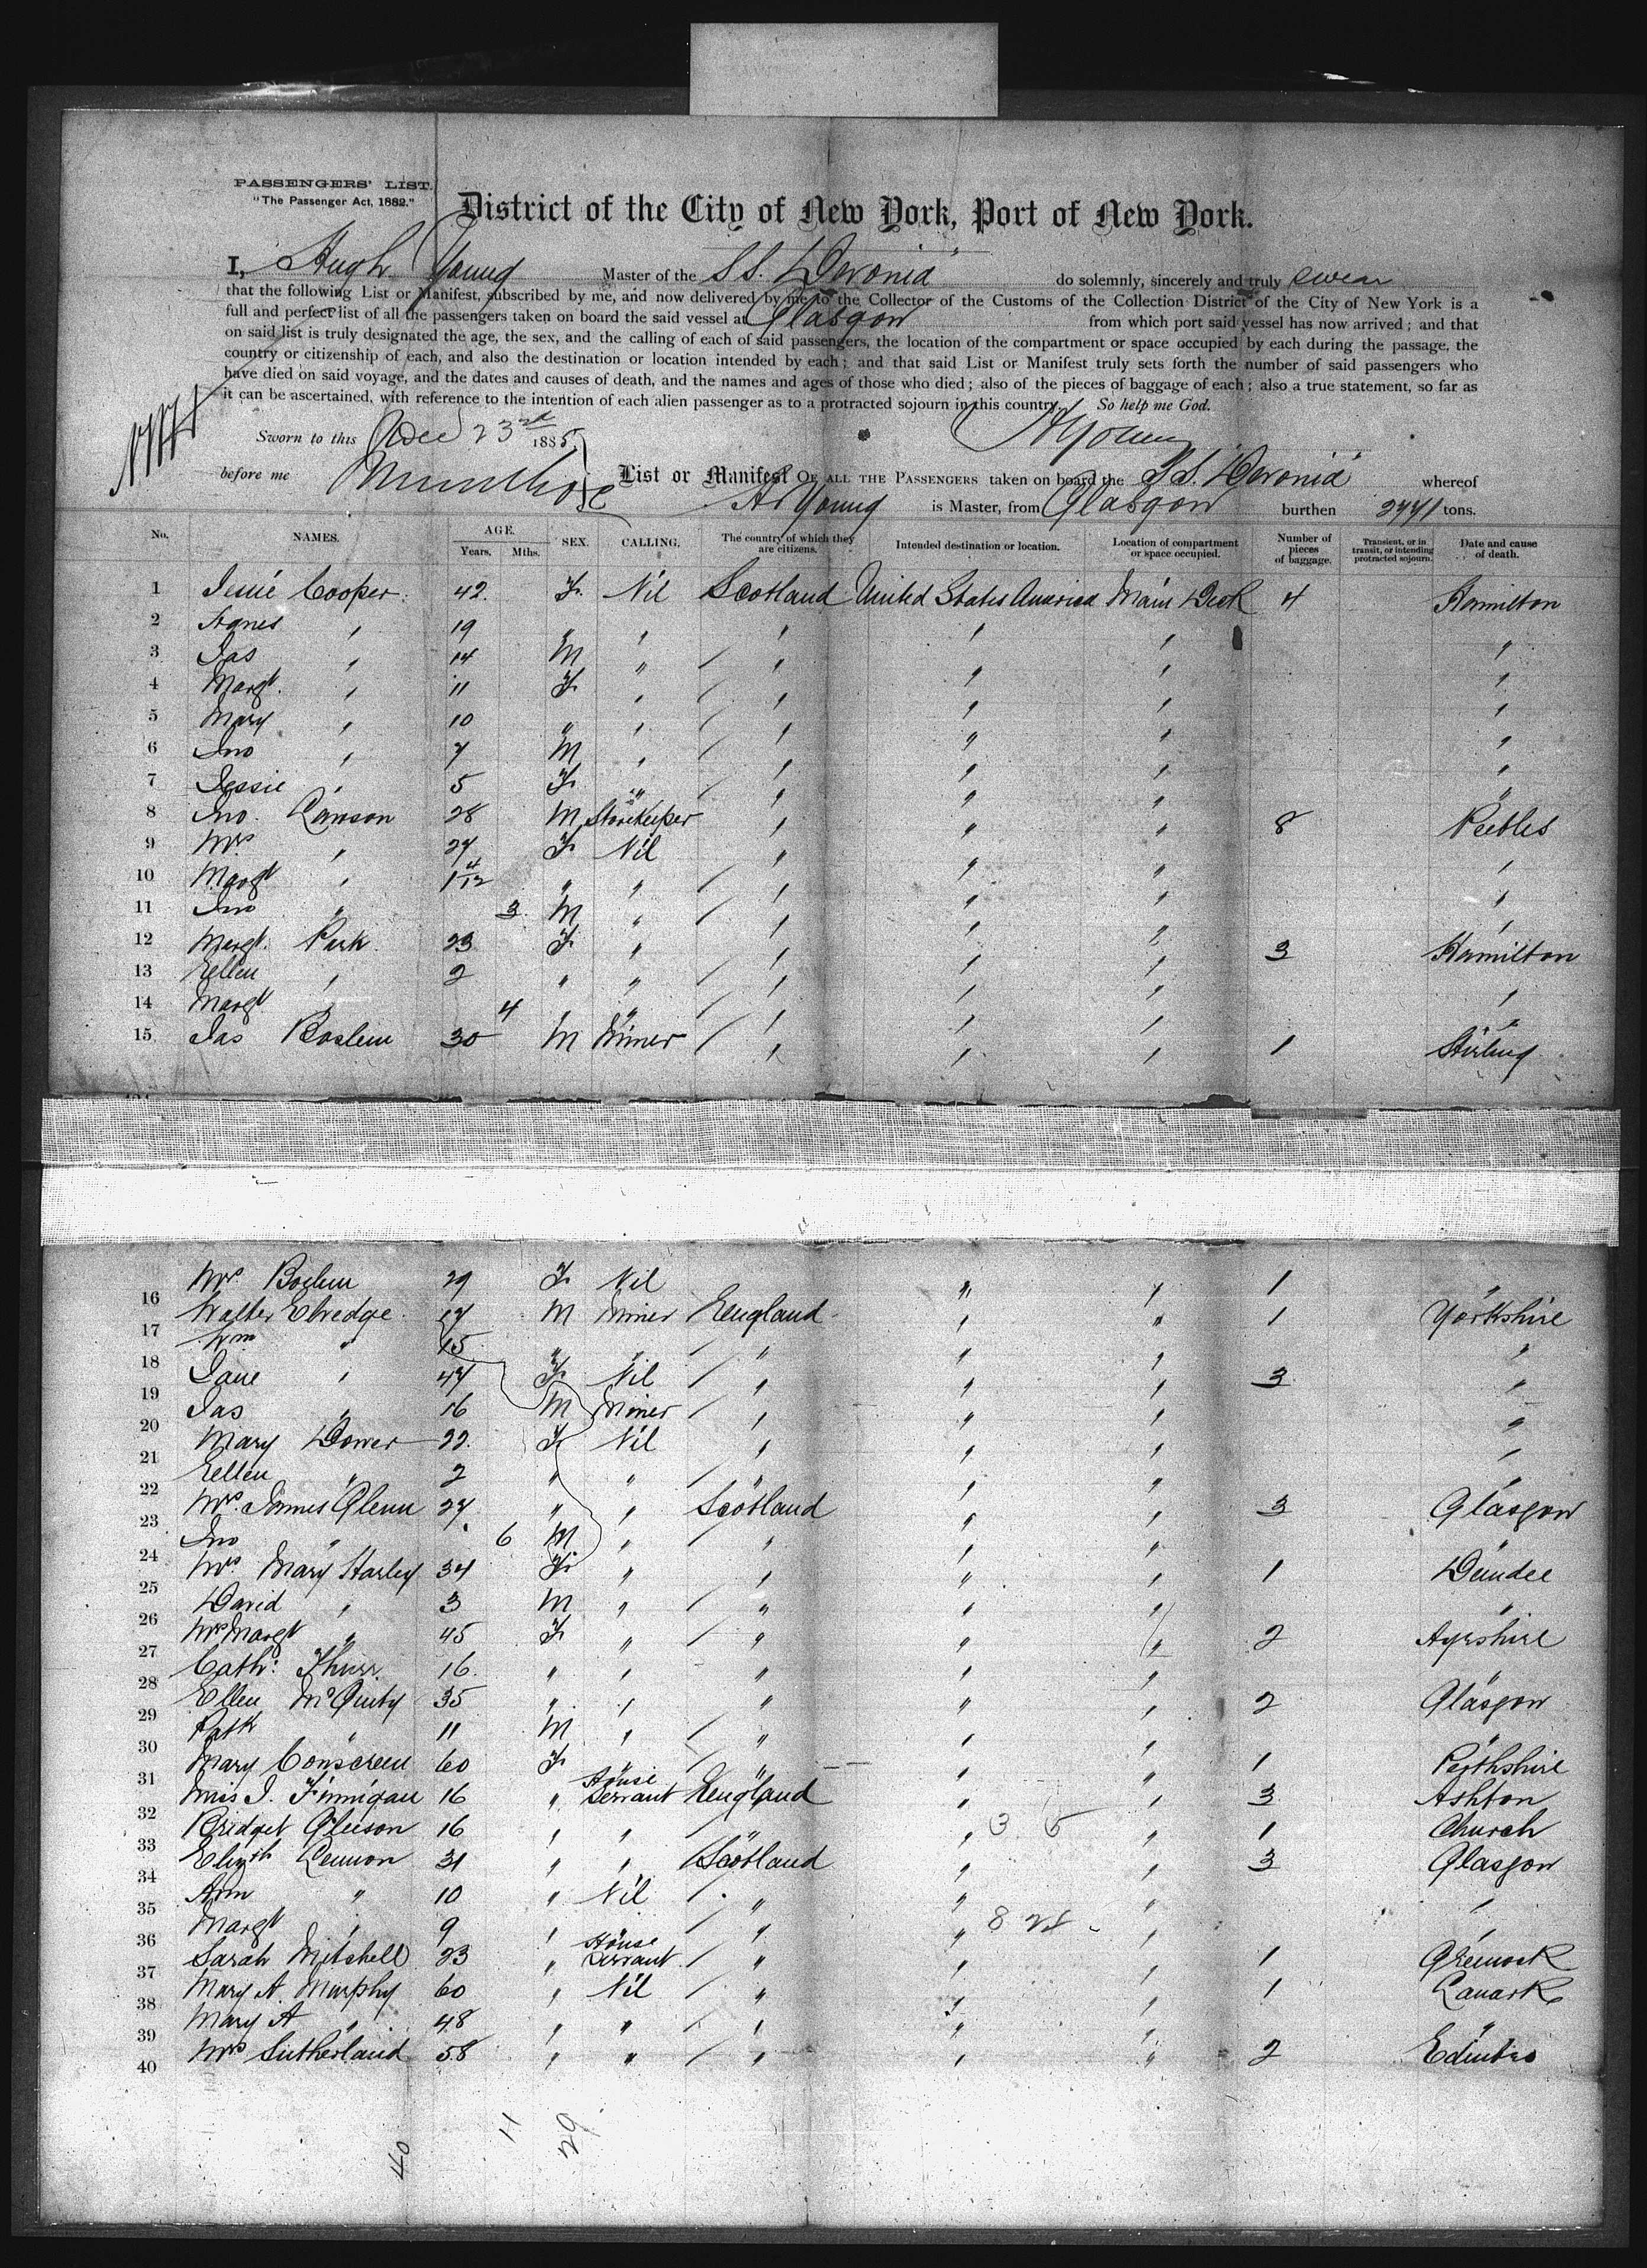 PASSENGERS' LIST.
"The Passenger Act, 1882."
District of the City of New York, Port of New York.
I, Hugh Young Master of the S.S. "Devonia" do solemnly, sincerely and truly swear
that the following List or Manifest, subscribed by me, and now delivered by me to the Collector of the Customs of the Collection District of the City of New York is a
full and perfect list of all the passengers taken on board the said vessel at Glasgow from which port said vessel has now arrived; and that
on said list is truly designated the age, the sex, and the calling of each of said passengers, the location of the compartment or space occupied by each during the passage, the
country or citizenship of each, and also the destination or location intended by each; and that said List or Manifest truly sets forth the number of said passengers who
have died on said voyage, and the dates and causes of death, and the names and ages of those who died; also of the pieces of baggage of each; also a true statement, so far as
it can be ascertained, with reference to the intention of each alien passenger as to a protracted sojourn in this country. So help me God.
Sworn to this Dec 23rd 1885 HYoung
before me
List or Manifest OF ALL THE PASSENGERS taken on board the S.S. "Devonia" whereof
H. Young is Master, from Glasgow burthen 2771 tons.
No. NAMES. AGE. Years. Mths. SEX. CALLING. The country of which they are citizens. Intended destination or location. Location of compartment or space occupied. Number of pieces of baggage. Transient, or in transit, or intending protracted sojourn. Date and cause of death.
1 Jessie Cooper 42 F. Nil Scotland United States America Main Deck 4 Hamilton
2 Agnes " 19 " " " " " "
3 Jas " 14 M " " " " "
4 Margt. " 11 F. " " " " "
5 Mary " 10 " " " " " "
6 Jno " 7 M " " " " "
7 Jessie " 5 F. " " " " "
8 Jno. Lawson 28 M Storekeeper " " " 8 Peebles
9 Mrs " 27 F. Nil " " " "
10 Margt " 1 4/12 " " " " " "
11 Jno " 3 M " " " " "
12 Margt. Park 23 F. " " " " 3 Hamilton
13 Ellen " 2 " " " " " "
14 Margt " 4 " " " " " "
15 Jas 30 M Miner " " " 1 Stirling
16 Mrs 29 F. Nil " " 1 "
17 Walter Elvedge 17 M Miner England " " 1 Yorkshire
18 Wm " 15 " " " " " "
19 Jane " 47 F. Nil " " " 3 "
20 Jas " 16 M Miner " " " "
21 Mary Dower 22 F. Nil " " " "
22 Ellen " 2 " " " " " "
23 Mrs. James Glenn 27 " " Scotland " " 3 Glasgow
24 Jno " 6 M " " " "
25 Mrs. Mary Harley 34 F. " " " " 1 Dundee
26 David " 3 M " " " " "
27 Mrs Margt " 45 F. " " " " 2 Ayrshire
28 Cath: 16 " " " " " "
29 Ellen McGinty 35 " " " " " 2 Glasgow
30 Patk " 11 M " " " " "
31 Mary 60 F. " " " " 1 Perthshire
32 Miss J. Finnigan 16 " House Servant England " " 3 Ashton
33 Bridget Gleeson 16 " " " " " 1 Church
34 Elizth Lennon 31 " " Scotland " " 3 Glasgow
35 Ann " 10 " Nil " " " "
36 Margt " 9 " " " " " "
37 Sarah Mitchell 23 " House Servant " " " 1 Greenock
38 Mary A. Murphy 60 " Nil " " " 1 Lanark
39 Mary A " 48 " " " " " "
40 Mrs Sutherland 58 " " " " " 2 Edinbro
40 11 29